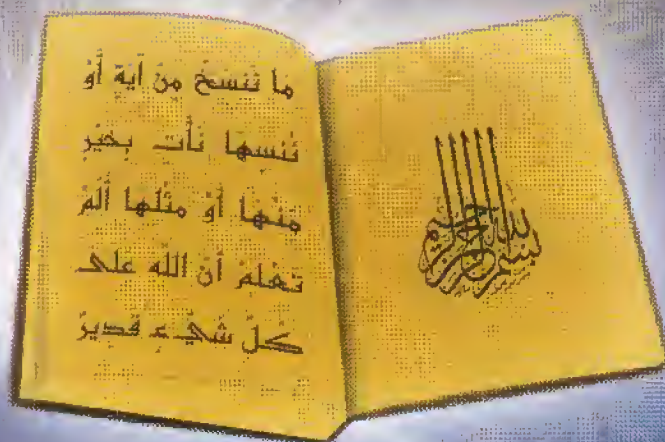 بسم الله الرحمن الرحيم
ما ننسخ من آية أو
ننسها نأت بخير
منها أو مثلها ألم
تعلم أن الله على
كل شيء قدير